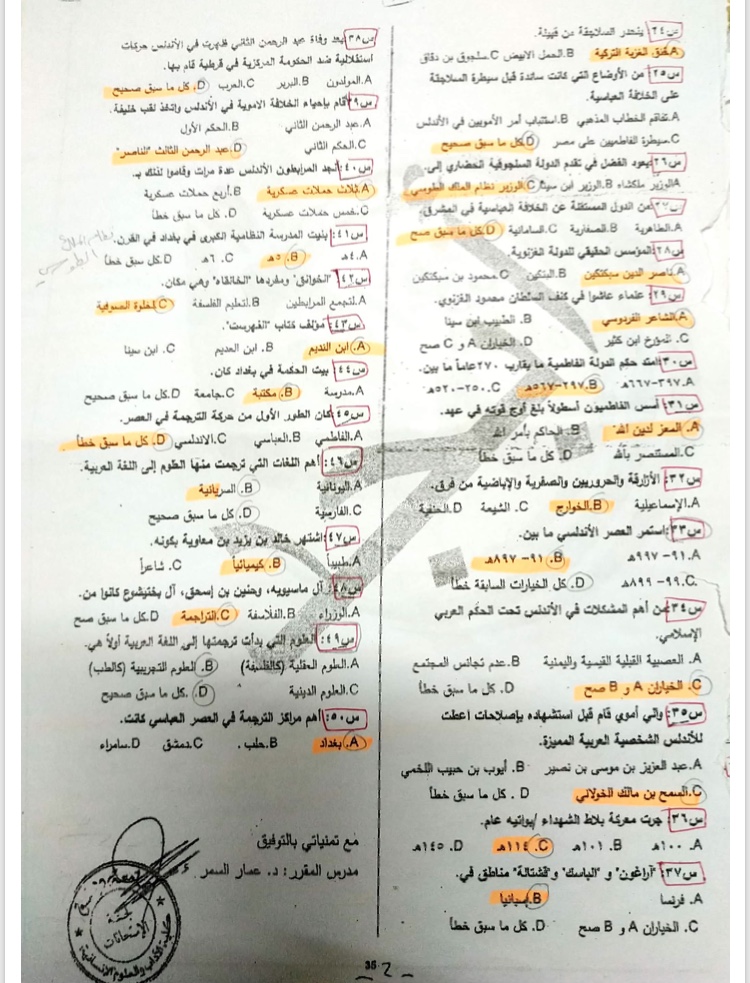 س٢٤: ينحدر السلاجقة من قبيلة.
A. قنق الغزية التركية B. الحمل الابيض C. سلجوق بن دقاق
س٢٥: من الأوضاع التي كانت سائدة قبل سيطرة السلاجقة
على الخلافة العباسية.
A. تفاقم الخطاب المذهبي B. استتباب أمر الأمويين في الأندلس
C. سيطرة الفاطميين على مصر D. كل ما سبق صحيح
س٢٦: يعود الفضل في تقدم الدولة السلجوقية الحضاري إلى.
A. الوزير ملكشاه B. الوزير ابن سينا C. الوزير نظام الملك الطوسي
س٢٧: من الدول المستقلة عن الخلافة العباسية في المشرق.
A. الطاهرية B. الصفارية C. السامانية D. كل ما سبق صح
س٢٨: المؤسس الحقيقي للدولة الغزنوية.
A. ناصر الدين سبكتكين B. البتكين C. محمود بن سبكتكين
س٢٩: علماء عاشوا في كنف السلطان محمود الغزنوي.
A. الشاعر الفردوسي B. الطبيب ابن سينا
C. المؤرخ ابن كثير D. الخياران A و C صح
س٣٠: امتد حكم الدولة الفاطمية ما يقارب ٢٧٠عاماً ما بين.
A. ٣٩٧-٦٦٧هـ B. ٢٩٧-٥٦٧هـ C. ٢٥٠-٥٢٠هـ
س٣١: أسس الفاطميون أسطولاً بلغ أوج قوته في عهد.
A. المعز لدين الله B. الحاكم بأمر الله
C. المستنصر بالله D. كل ما سبق خطأ
س٣٢: الأزارقة والحروريين والصفرية والإباضية من فرق.
A. الإسماعيلية B. الخوارج C. الشيعة D. الحنفية
س٣٣: استمر العصر الأندلسي ما بين.
A. ٩١- ٩٩٧هـ B. ٩١- ٨٩٧هـ
C. ٩٩- ٨٩٩هـ D. كل الخيارات السابقة خطأ
س٣٤: من أهم المشكلات في الأندلس تحت الحكم العربي
الإسلامي.
A. العصبية القبلية القيسية واليمنية B. عدم تجانس المجتمع
C. الخياران A و B صح D. كل ما سبق خطأ
س٣٥: والي أموي قام قبل استشهاده بإصلاحات اعطت
للأندلس الشخصية العربية المميزة.
A. عبد العزيز بن موسى بن نصير B. أيوب بن حبيب اللخمي
C. السمح بن مالك الخولاني D. كل ما سبق خطأ
س٣٦: جرت معركة بلاط الشهداء /بواتيه عام.
A. ١٠٠هـ B. ١٠١هـ C. ١١٤هـ D. ١٤٥هـ
س٣٧: "آراغون" و "الباسك" و"قشتالة" مناطق في.
A. فرنسا B. إسبانيا
C. الخياران A و B صح D. كل ما سبق خطأ
س٣٨: بعد وفاة عبد الرحمن الثاني ظهرت في الأندلس حركات
استقلالية ضد الحكومة المركزية في قرطبة قام بها.
A. المولدون B. البربر C. العرب D. كل ما سبق صحيح
س٣٩: قام بإحياء الخلافة الاموية في الأندلس واتخذ لقب خليفة.
A. عبد الرحمن الثاني B. الحكم الأول
C. الحكم الثاني D. عبد الرحمن الثالث "الناصر"
س٤٠: أنجد المرابطون الأندلس عدة مرات وقاموا لذلك بـ
A. ثلاث حملات عسكرية B. أربع حملات عسكرية
C. خمس حملات عسكرية D. كل ما سبق خطأ
س٤١: بنيت المدرسة النظامية الكبرى في بغداد في القرن.
A. ٤هـ B. ٥هـ C. ٦هـ D. كل ما سبق خطأ
س٤٢: "الخوانق" ومفردها "الخانقاه" وهي مكان.
A. لتجمع المرابطين B. لتعليم الفلسفة C. لخلوة الصوفية
س٤٣: مؤلف كتاب "الفهرست".
A. ابن النديم B. ابن العديم C. ابن سينا
س٤٤: بيت الحكمة في بغداد كان.
A. مدرسة B. مكتبة C. جامعة D. كل ما سبق صحيح
س٤٥: كان الطور الأول من حركة الترجمة في العصر.
A. الفاطمي B. العباسي C. الاندلسي D. كل ما سبق خطأ
س٤٦: أهم اللغات التي ترجمت منها العلوم إلى اللغة العربية.
A. اليونانية B. السريانية
C. الفارسية D. كل ما سبق صحيح
س٤٧: اشتهر خالد بن يزيد بن معاوية بكونه.
A. طبيباً B. كيميائياً C. شاعراً
س٤٨: آل ماسيويه، وحنين بن إسحق، آل بختيشوع كانوا من.
A. الوزراء B. الفلاسفة C. التراجمة D. كل ما سبق صح
س٤٩: العلوم التي بدأت ترجمتها إلى اللغة العربية أولاً هي.
A. العلوم العقلية (كالفلسفة) B. العلوم التجريبية (كالطب)
C. العلوم الدينية D. كل ما سبق صحيح
س٥٠: أهم مراكز الترجمة في العصر العباسي كانت.
A. بغداد B. حلب. C. دمشق D. سامراء
مع تمنياتي بالتوفيق
مدرس المقرر: د. عمار السمر
لجنة
الإمتحانات
كلية الآداب والعلوم الإنسانية
35
2